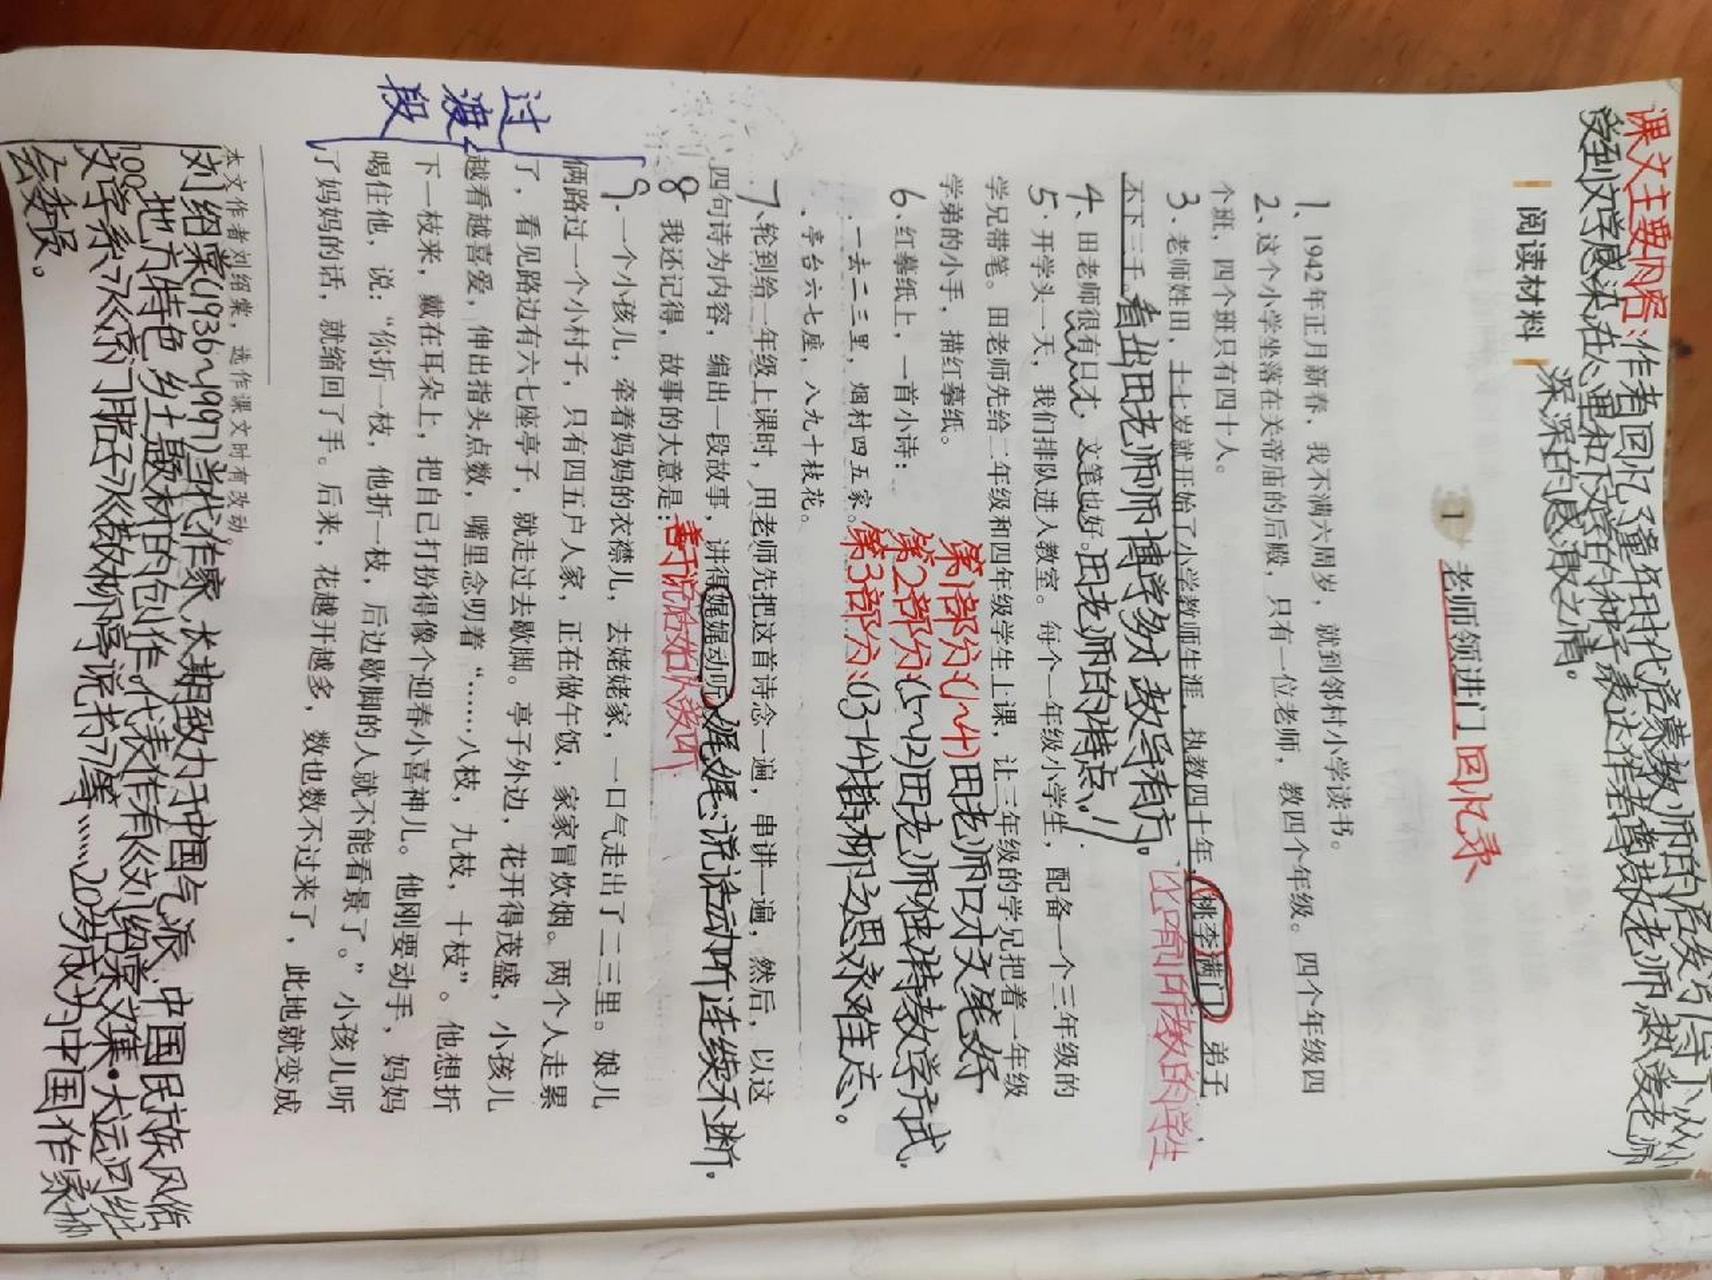 课文主要内容：作者回忆了童年时代启蒙教师的启发与传
受到文学感染在心里和下文学的种子表达作者尊敬老师热爱老师
深深的感激之情。
阅读材料
1
老师领进门 回忆录
1、1942年正月新春，我不满六周岁，就到邻村小学读书。
2、这个小学坐落在关帝庙的后殿，只有一位老师，教四个年级。四个年级四
个班，四个班只有四十人。
3、老师姓田，十七岁就开始了小学教师生涯，执教四十年，桃李满门，弟子
不下三千。看出田老师师博学多才教导有方。
比喻所教的学生
4、田老师很有口才，文笔也好。田老师的特点！
5、开学头一天，我们排队进入教室。每个一年级小学生，配备一个三年级的
学兄带笔。田老师先给二年级和四年级学生上课，让三年级的学兄把着一年级
学弟的小手，描红摹纸。
第1部分：(1~4)田老师口才文笔好
6、红摹纸上，一首小诗：
第2部分：(5~12)田老师独特教学方式
一去二三里，烟村四五家。
第3部分：(13~14)插柳之恩永难忘。
亭台六七座，八九十枝花。
7、轮到给一年级上课时，田老师先把这首诗念一遍，串讲一遍，然后，以这
四句诗为内容，编出一段故事，讲得娓娓动听。娓娓：说话动听连续不断。
8 我还记得，故事的大意是：善于说话如从教
9、一个小孩儿，牵着妈妈的衣襟儿，去姥姥家，一口气走出了二三里。娘儿
俩路过一个小村子，只有四五户人家，正在做午饭，家家冒炊烟。两个人走累
了，看见路边有六七座亭子，就走过去歇脚。亭子外边，花开得茂盛，小孩儿
越看越喜爱，伸出指头点数，嘴里念叨着“……八枝，九枝，十枝”。他想折
下一枝来，戴在耳朵上，把自己打扮得像个迎春小喜神儿。他刚要动手，妈妈
喝住他，说：“你折一枝，他折一枝，后边歇脚的人就不能看景了。”小孩儿听
了妈妈的话，就缩回了手。后来，花越开越多，数也数不过来了，此地就变成
过渡段
本文作者刘绍棠，选作课文时有改动。
刘绍棠(1936~1997)当代作家，长期致力于中国气派、中国民族风俗
地方特色乡土题材的创作。代表作有《刘绍棠文集·大运河
100字系》《京门脖子》《敬柳亭说书》等……20岁成为中国作家协
会委员。